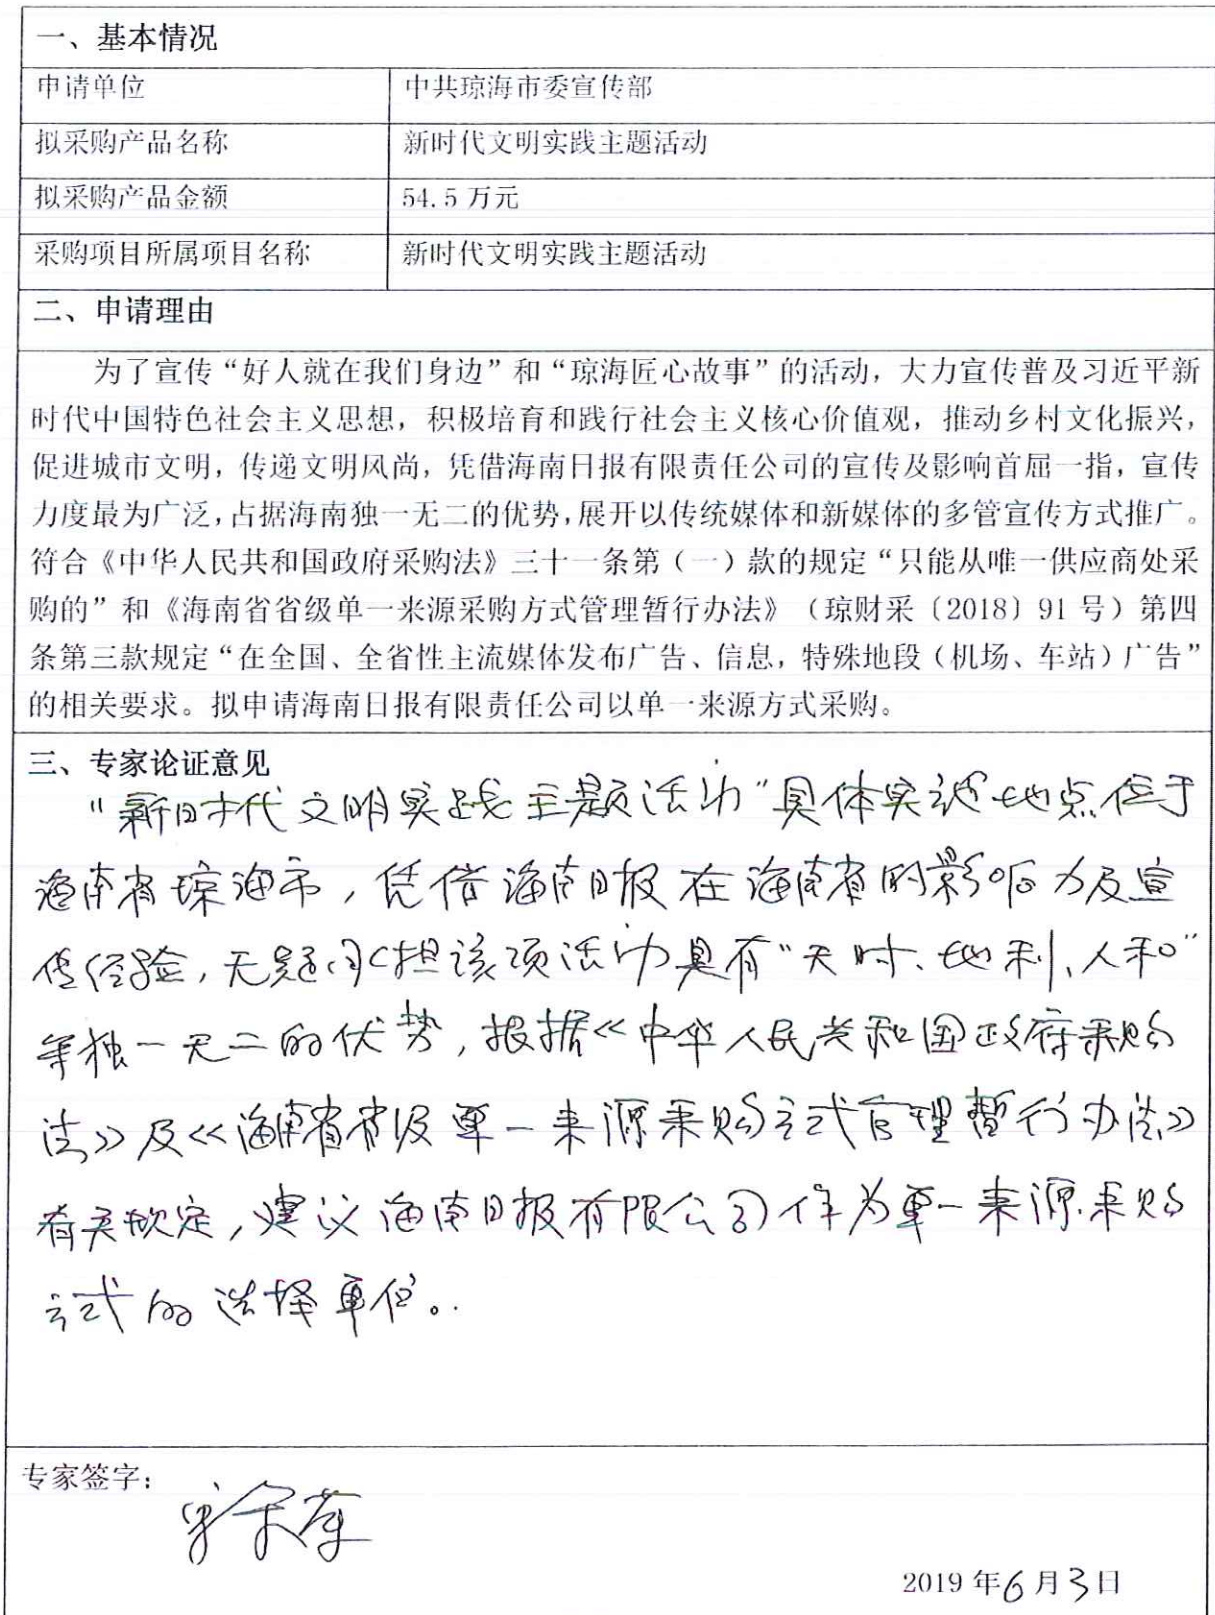 一、基本情况
申请单位 中共琼海市委宣传部
拟采购产品名称 新时代文明实践主题活动
拟采购产品金额 54.5 万元
采购项目所属项目名称 新时代文明实践主题活动
二、申请理由
为了宣传“好人就在我们身边”和“琼海匠心故事”的活动，大力宣传普及习近平新
时代中国特色社会主义思想，积极培育和践行社会主义核心价值观，推动乡村文化振兴，
促进城市文明，传递文明风尚，凭借海南日报有限责任公司的宣传及影响首屈一指，宣传
力度最为广泛，占据海南独一无二的优势，展开以传统媒体和新媒体的多管宣传方式推广。
符合《中华人民共和国政府采购法》三十一条第（一）款的规定“只能从唯一供应商处采
购的”和《海南省省级单一来源采购方式管理暂行办法》（琼财采〔2018〕91 号）第四
条第三款规定“在全国、全省性主流媒体发布广告、信息，特殊地段（机场、车站）广告”
的相关要求。拟申请海南日报有限责任公司以单一来源方式采购。
三、专家论证意见
“新时代文明实践主题活动”具体实施地点位于
海南省琼海市，凭借海南日报在海南省的影响力及宣
传经验，无疑承担该项活动具有“天时、地利、人和”
等独一无二的优势，根据《中华人民共和国政府采购
法》及《海南省省级单一来源采购方式管理暂行办法》
有关规定，建议海南日报有限公司作为单一来源采购
方式的选择单位。
专家签字：
2019 年6月3日